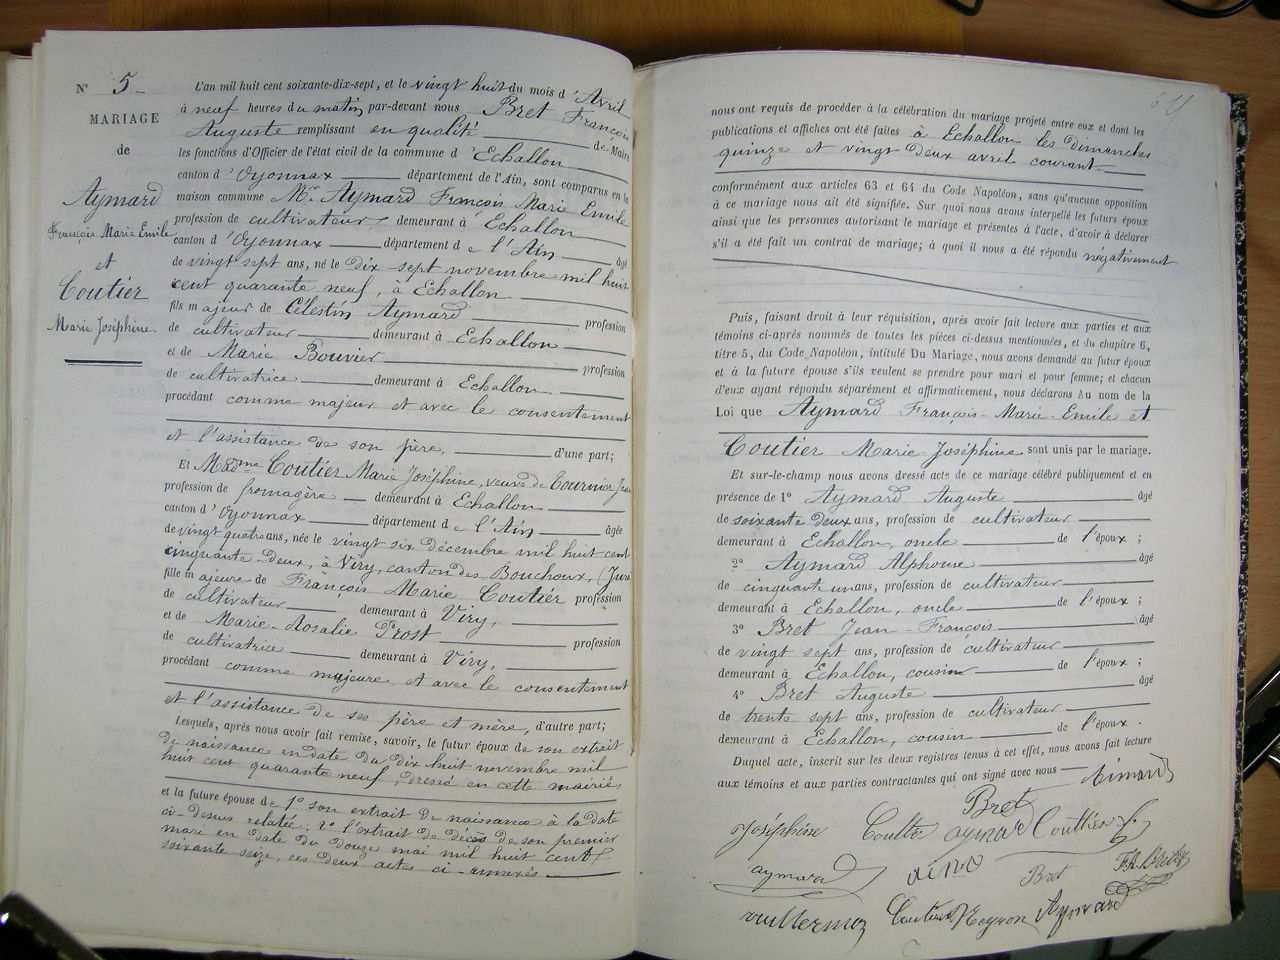 N° 5
MARIAGE
de
Aymard
François Marie Emile
et
Coutier
Marie Joséphine.
L'an mil huit cent soixante-dix-sept, et le vingt huit du mois d'Avril
à neuf heures du matin par-devant nous Bret François
Auguste remplissant en qualité de Maire
les fonctions d'Officier de l'état civil de la commune d'Echallon
canton d'Oyonnax département de l'Ain, sont comparus en la
maison commune Mr Aymard François Marie Emile
profession de cultivateur, demeurant à Echallon
canton d'Oyonnax département de l'Ain âgé
de vingt sept ans, né le dix sept novembre mil huit
cent quarante neuf, à Echallon
fils majeur de Célestin Aymard profession
de cultivateur demeurant à Echallon
et de Marie Bouvier profession
de cultivatrice demeurant à Echallon
procédant comme majeur et avec le consentement
et l'assistance de son père, d'une part;
Et Madme Coutier Marie Joséphine, veuve de Cournier
profession de fromagère demeurant à Echallon
canton d'Oyonnax département de l'Ain âgée
de vingt quatre ans, née le vingt six décembre mil huit cent
cinquante-deux, à Viry, canton des Bouchoux, (Jura
fille majeure de François Marie Coutier profession
de cultivateur demeurant à Viry,
et de Marie-Rosalie Prost profession
de cultivatrice demeurant à Viry,
procédant comme majeure et avec le consentement
et l'assistance de ses père et mère, d'autre part;
Lesquels, après nous avoir fait remise, savoir, le futur époux de son extrait
de naissance en date du dix huit novembre mil
huit cent quarante neuf, dressé en cette mairie,
et la future épouse de 1° son extrait de naissance à la date
ci-dessus relatée; 2° l'extrait de décès de son premier
mari en date du douze mai mil huit cent
soixante seize, ces deux actes ci-annexés
nous ont requis de procéder à la célébration du mariage projeté entre eux et dont les
publications et affiches ont été faites à Echallon les dimanches
quinze et vingt deux avril courant
conformément aux articles 63 et 64 du Code Napoléon, sans qu'aucune opposition
à ce mariage nous ait été signifiée. Sur quoi nous avons interpellé les futurs époux
ainsi que les personnes autorisant le mariage et présentes à l'acte, d'avoir à déclarer
s'il a été fait un contrat de mariage; à quoi il nous a été répondu négativement
Puis, faisant droit à leur réquisition, après avoir fait lecture aux parties et aux
témoins ci-après nommés de toutes les pièces ci-dessus mentionnées, et du chapitre 6,
titre 5, du Code Napoléon, intitulé Du Mariage, nous avons demandé au futur époux
et à la future épouse s'ils veulent se prendre pour mari et pour femme; et chacun
d'eux ayant répondu séparément et affirmativement, nous déclarons au nom de la
Loi que Aymard François-Marie-Emile et
Coutier Marie Joséphine sont unis par le mariage.
Et sur-le-champ nous avons dressé acte de ce mariage célébré publiquement et en
présence de 1° Aymard Auguste âgé
de soixante deux ans, profession de cultivateur
demeurant à Echallon, oncle de l'époux;
2° Aymard Alphonse âgé
de cinquante un ans, profession de cultivateur
demeurant à Echallon, oncle de l'époux;
3° Bret Jean-François âgé
de vingt sept ans, profession de cultivateur
demeurant à Echallon, cousin de l'époux;
4° Bret Auguste âgé
de trente sept ans, profession de cultivateur
demeurant à Echallon, cousin de l'époux.
Duquel acte, inscrit sur les deux registres tenus à cet effet, nous avons fait lecture
aux témoins et aux parties contractantes qui ont signé avec nous
Aimard
Bret
Joséphine Coutie aymard Couttier
aymard Bret
Vuillermoz Peyron Aymard